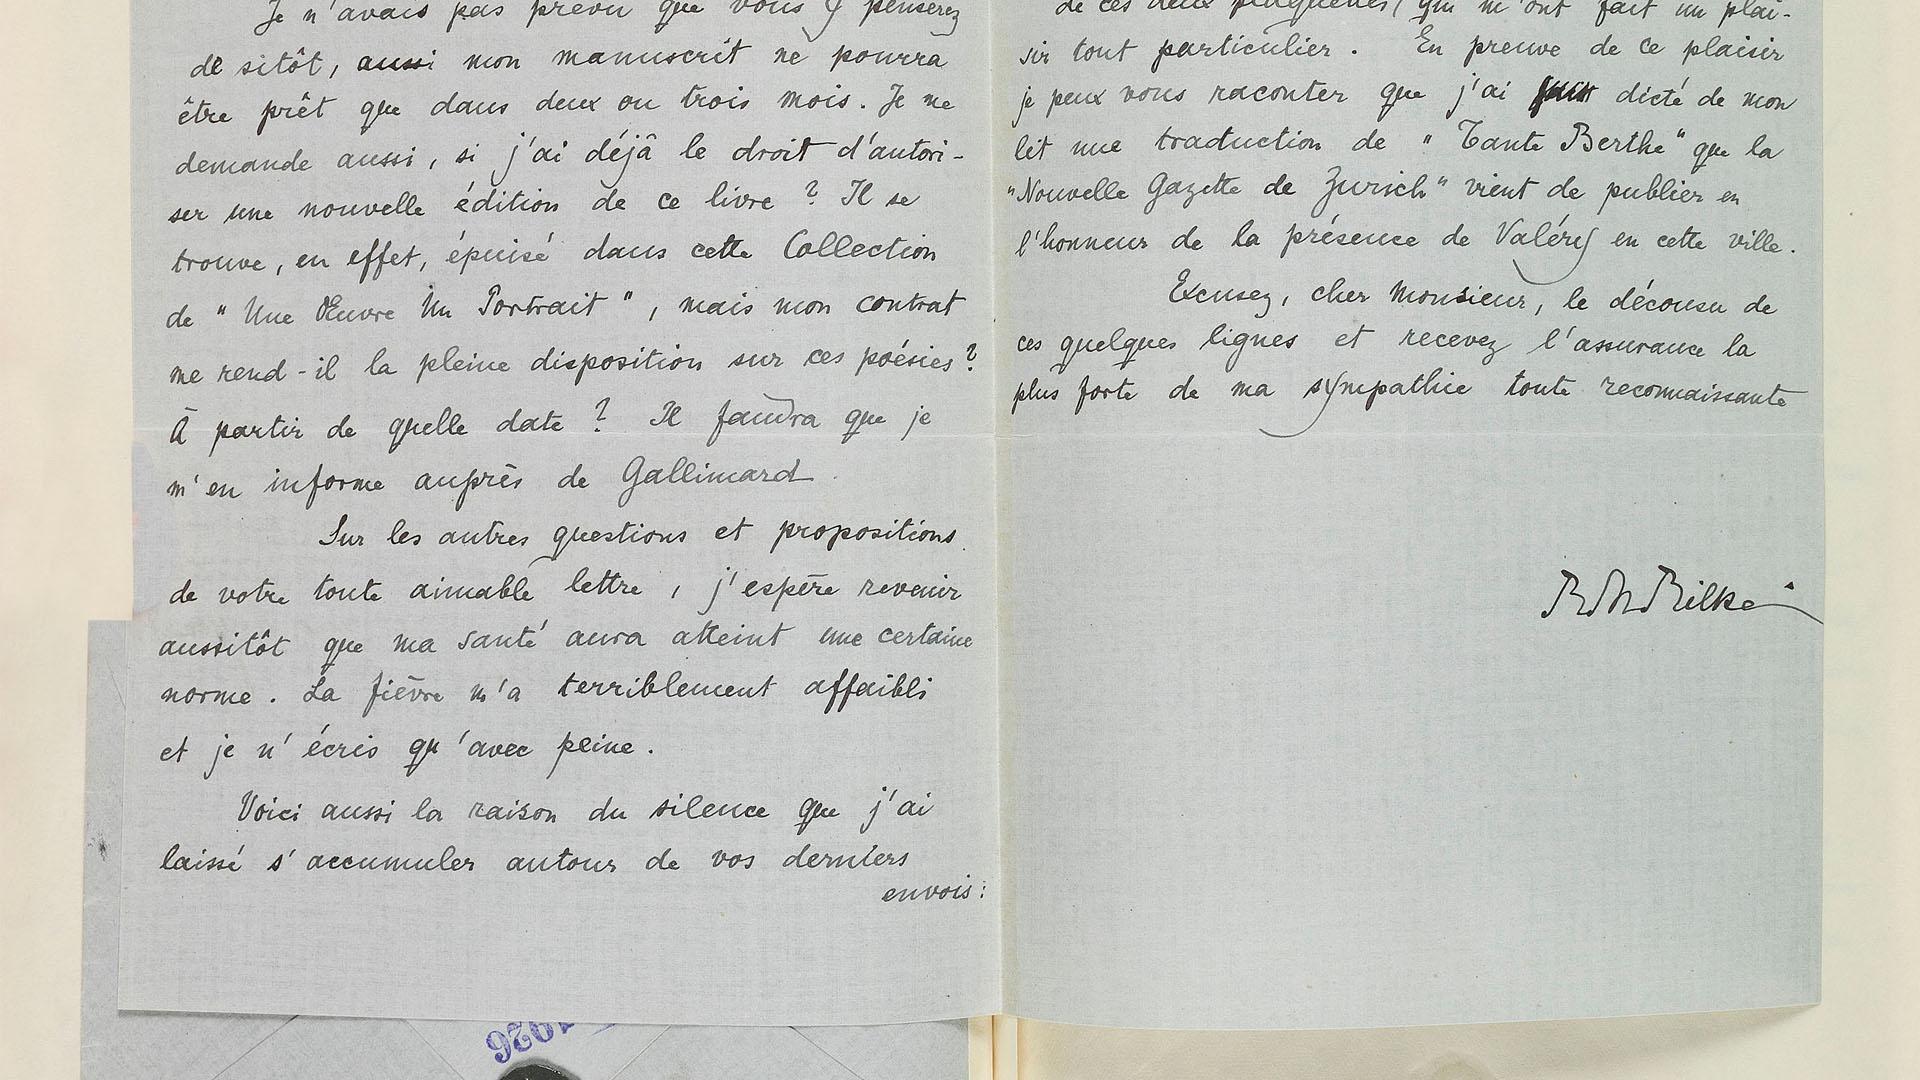 Je n'avais pas prévu que vous y penserez
de sitôt, aussi mon manuscrit ne pourra
être prêt que dans deux ou trois mois. Je me
demande aussi, si j'ai déjâ le droit d'autori-
ser une nouvelle édition de ce livre ? Il se
trouve, en effet, épuisé dans cette Collection
de " Une Œuvre Un Portrait ", mais mon contrat
me rend-il la pleine disposition sur ces poésies ?
À partir de quelle date ? Il faudra que je
m'en informe auprès de Gallimard.
Sur les autres questions et propositions
de votre toute aimable lettre, j'espère revenir
aussitôt que ma santé aura atteint une certaine
norme. La fièvre m'a terriblement affaibli
et je n'écris qu'avec peine.
Voici aussi la raison du silence que j'ai
laissé s'accumuler autour de vos derniers
envois:
de ces deux plaquettes, qui m'ont fait un plai-
sir tout particulier. En preuve de ce plaisir
je peux vous raconter que j'ai dicté de mon
lit une traduction de " Tante Berthe " que la
"Nouvelle Gazette de Zurich" vient de publier en
l'honneur de la présence de Valéry en cette ville.
Excusez, cher Monsieur, le décousu de
ces quelques lignes et recevez l'assurance la
plus forte de ma sympathie toute reconnaissante
RMRilke
1926